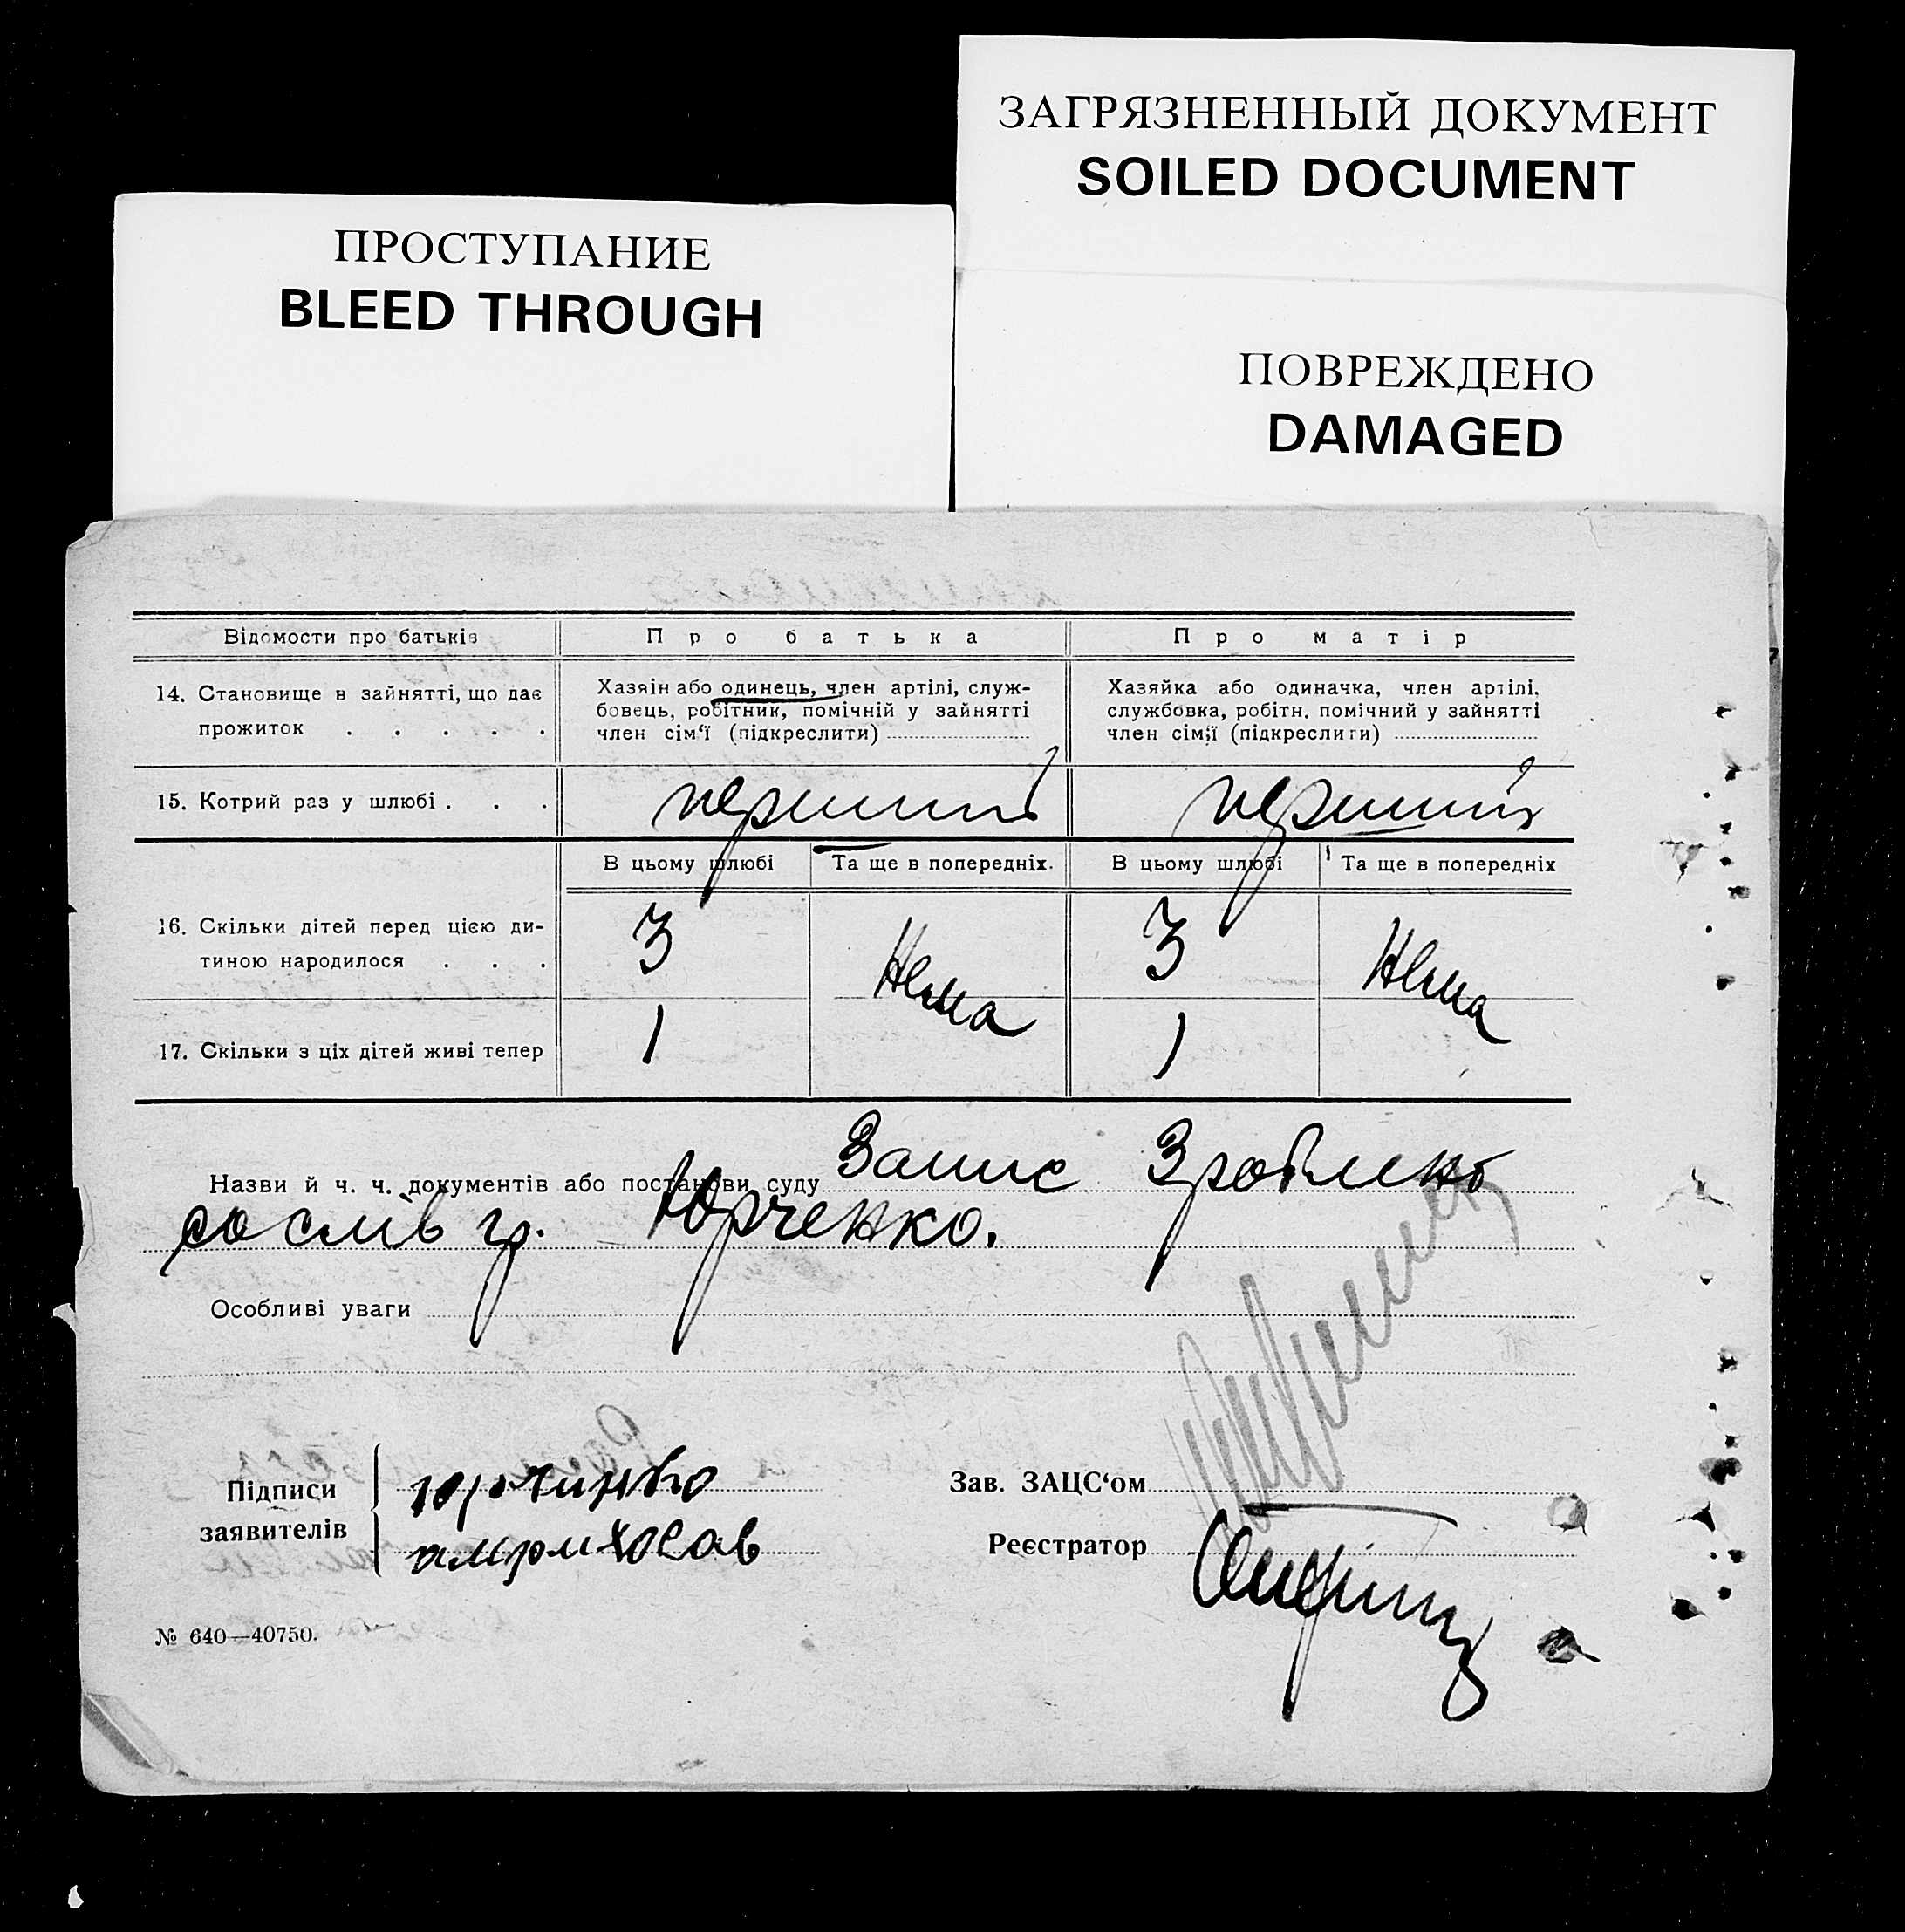 ЗАГРЯЗНЕННЫЙ ДОКУМЕНТ
SOILED DOCUMENT
ПРОСТУПАНИЕ
BLEED THROUGH
ПОВРЕЖДЕНО
DAMAGED
Відомости про батьків Про батька Про матір
14. Становище в зайнятті, що дає
прожиток . . . . .
Хазяін або одинець, член артілі, служ-
бовець, робітник, помічній у зайнятті
член сім'ї (підкреслити)
Хазяйка або одиначка, член артілі,
службовка, робітн. помічний у зайнятті
член сім'ї (підкреслити)
15. Котрий раз у шлюбі . . . перший перший
В цьому шлюбі Та ще в попередніх. В цьому шлюбі Та ще в попередніх
16. Скільки дітей перед цією ди-
тиною народилося . . .
3 Нема 3 Нема
17. Скільки з ціх дітей живі тепер 1 1
Назви й ч. ч. документів або постанови суду Запис Зроблено
со слів гр. Юрченко.
Особливі уваги
Підписи
заявителів
Зав. ЗАЦС'ом
Реєстратор
№ 640—40750.